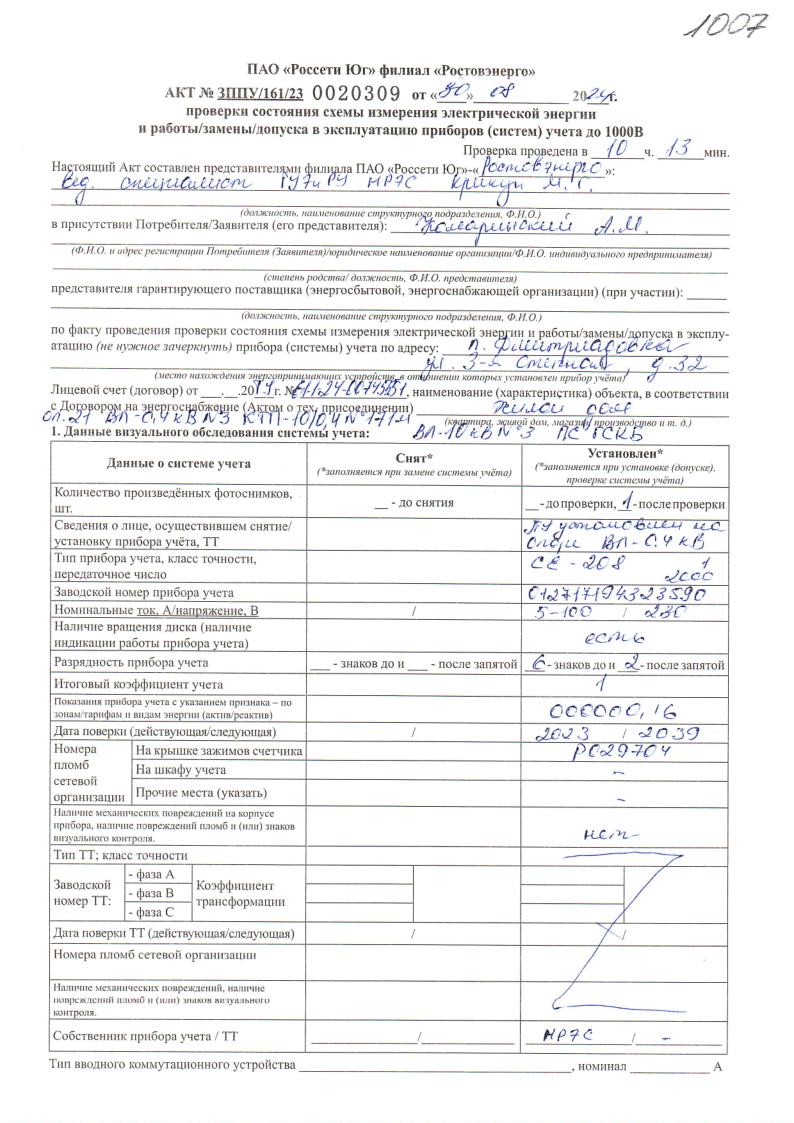 1007
ПАО «Россети Юг» филиал «Ростовэнерго»
АКТ № ЗППУ/161/23 0020309 от «30» 08 2024г.
проверки состояния схемы измерения электрической энергии
и работы/замены/допуска в эксплуатацию приборов (систем) учета до 1000В
Проверка проведена в 10 ч. 13 мин.
Настоящий Акт составлен представителями филиала ПАО «Россети Юг»-«Ростовэнерго»:
Вед. специалист НРЭС Крикун М. Г.
(должность, наименование структурного подразделения, Ф.И.О.)
в присутствии Потребителя/Заявителя (его представителя): А.М.
(Ф.И.О. и адрес регистрации Потребителя (Заявителя)/юридическое наименование организации/Ф.И.О. индивидуального предпринимателя)
(степень родства/ должность, Ф.И.О. представителя)
представителя гарантирующего поставщика (энергосбытовой, энергоснабжающей организации) (при участии):
(должность, наименование структурного подразделения, Ф.И.О.)
по факту проведения проверки состояния схемы измерения электрической энергии и работы/замены/допуска в эксплу-
атацию (не нужное зачеркнуть) прибора (системы) учета по адресу: п. Дмитриадовка
ул. 3-я Степная, д.32
(место нахождения энергопринимающих устройств, в отношении которых установлен прибор учёта)
Лицевой счет (договор) от ___.__.20 г. № , наименование (характеристика) объекта, в соответствии
с Договором на энергоснабжение (Актом о тех. присоединении) жилой дом
оп.21 ВЛ-0.4кВ №3 КТП-10/0,4 №171М (квартира, жилой дом, магазин, производство и т. д.)
1. Данные визуального обследования системы учета: ВЛ-10кВ №3 ПС ГСКБ
Данные о системе учета
Снят*
(*заполняется при замене системы учёта)
Установлен*
(*заполняется при установке (допуске), проверке системы учёта)
Количество произведённых фотоснимков, шт.
__ - до снятия
__ - до проверки, 1 - после проверки
Сведения о лице, осуществившем снятие/
установку прибора учёта, ТТ
ПУ установлен на
опоре ВЛ-0.4кВ
Тип прибора учета, класс точности,
передаточное число
СЕ-208 1
2000
Заводской номер прибора учета
012717194323590
Номинальные ток, А/напряжение, В / 5-100 / 230
Наличие вращения диска (наличие
индикации работы прибора учета)
есть
Разрядность прибора учета ___ - знаков до и ___ - после запятой 6 - знаков до и 2 - после запятой
Итоговый коэффициент учета 1
Показания прибора учета с указанием признака – по
зонам/тарифам и видам энергии (актив/реактив)
000000,16
Дата поверки (действующая/следующая) / 2023 / 2039
Номера пломб сетевой организации
На крышке зажимов счетчика РО29704
На шкафу учета –
Прочие места (указать) –
Наличие механических повреждений на корпусе
прибора, наличие повреждений пломб и (или) знаков
визуального контроля.
нет
Тип ТТ; класс точности
Заводской номер ТТ:
- фаза А
- фаза В
- фаза С
Коэффициент трансформации
Дата поверки ТТ (действующая/следующая) / /
Номера пломб сетевой организации
Наличие механических повреждений, наличие
повреждений пломб и (или) знаков визуального
контроля.
Собственник прибора учета / ТТ / НРЭС / –
Тип вводного коммутационного устройства , номинал А